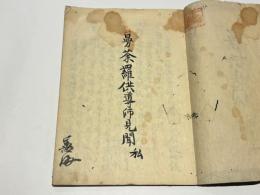 曼荼羅供導師見聞 私